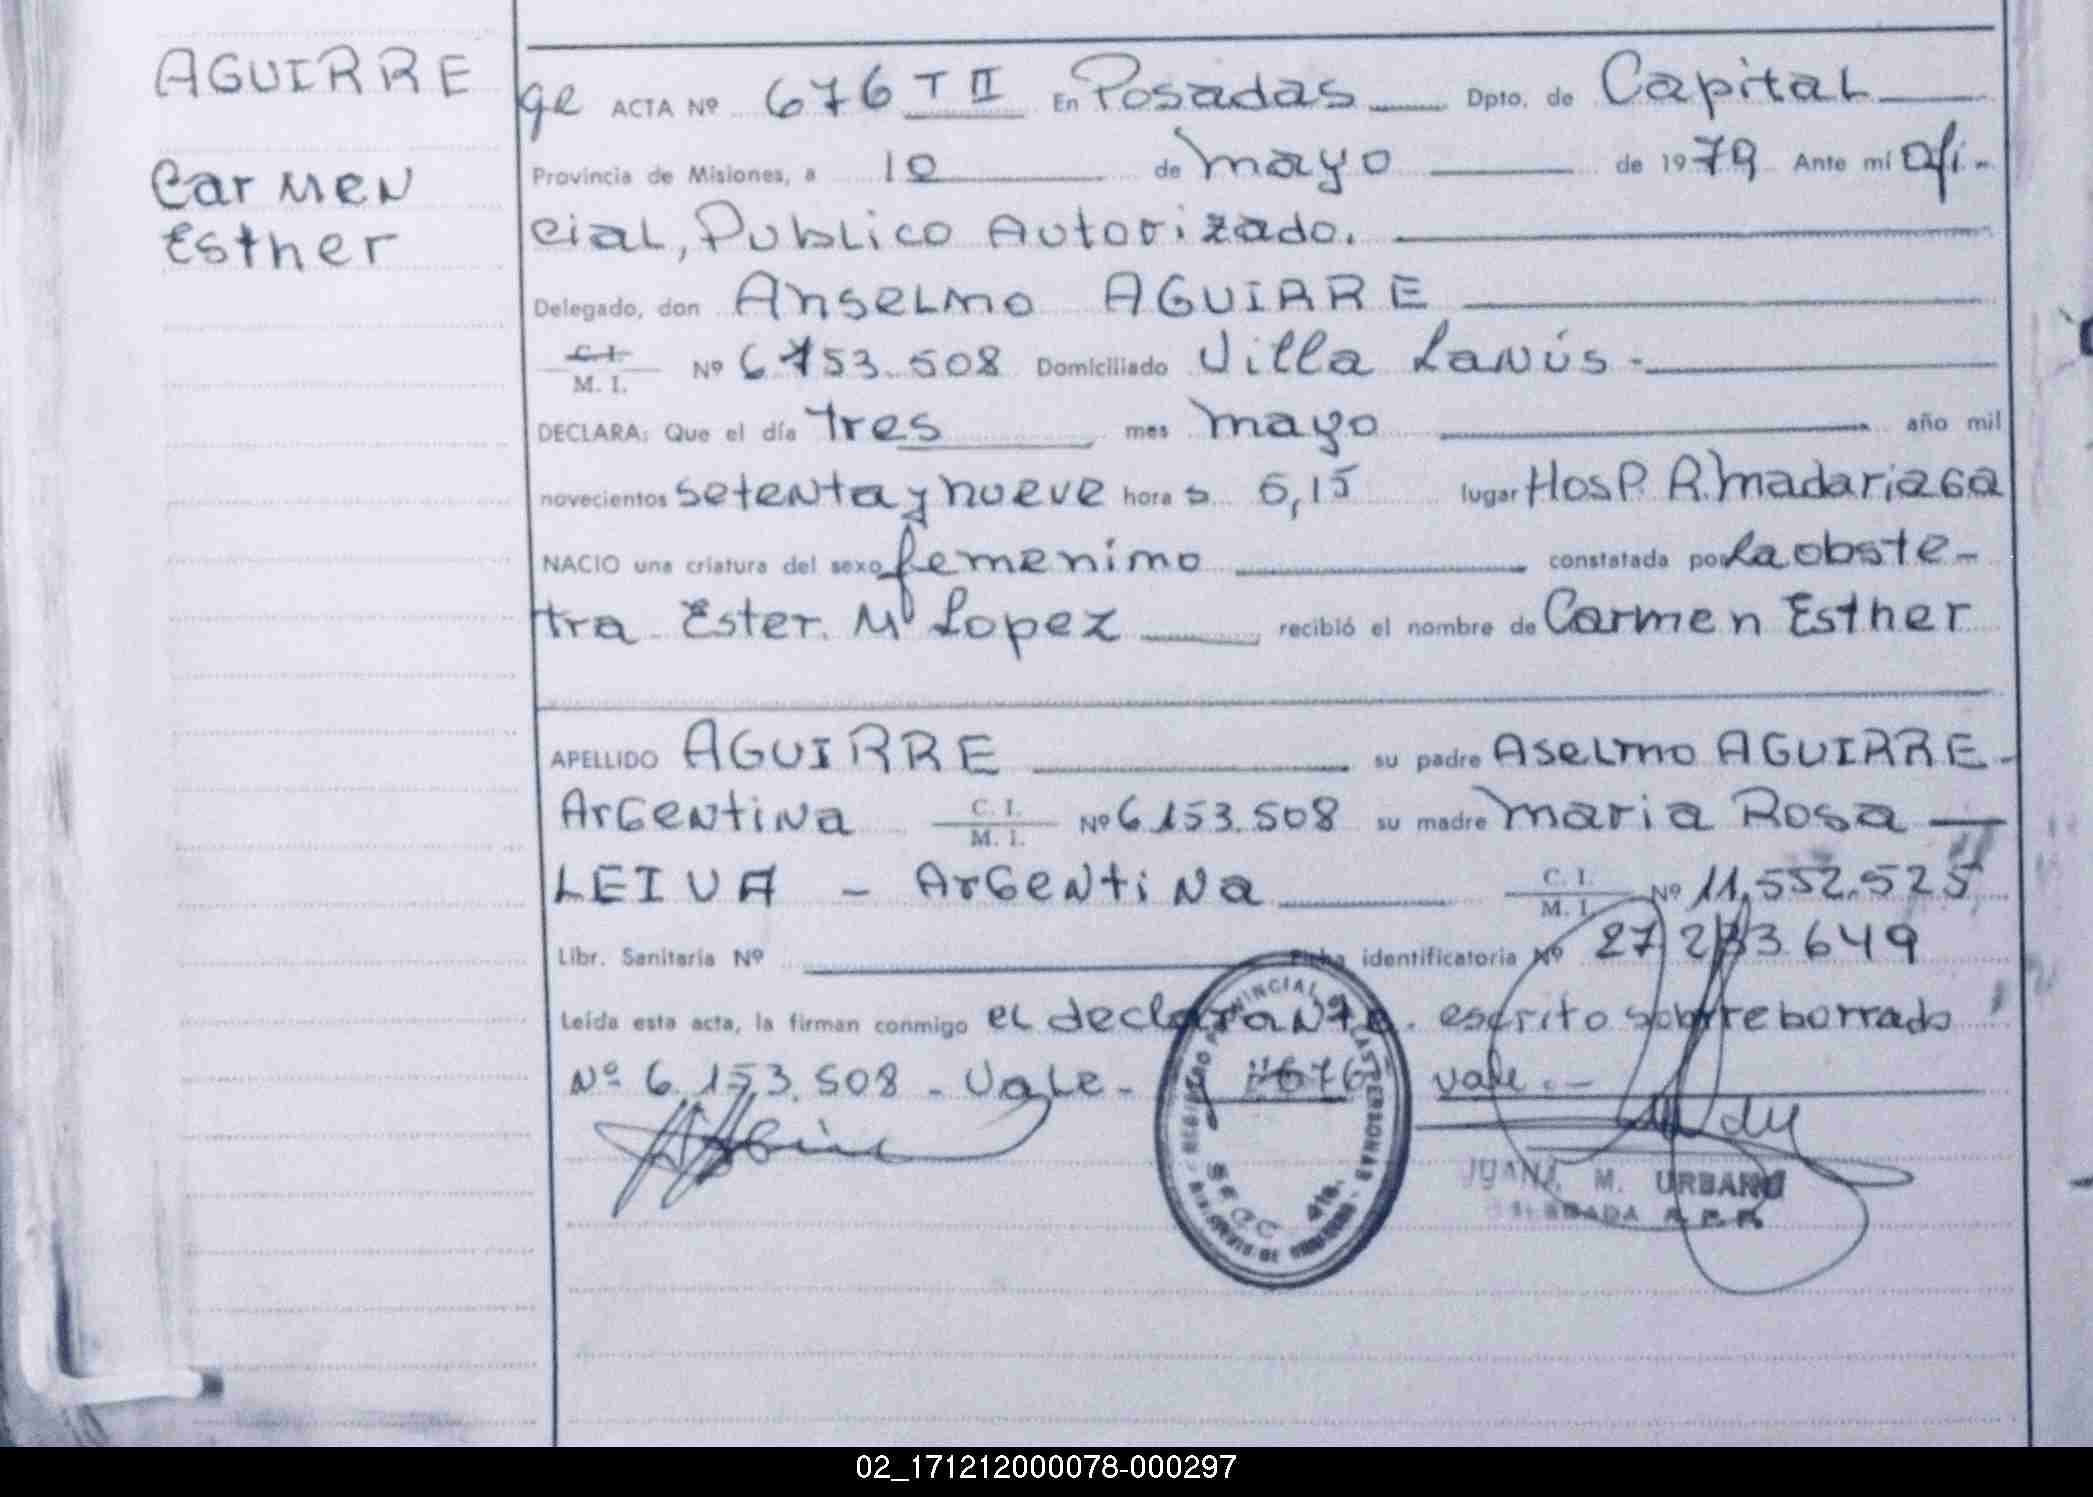 AGUIRRE
Carmen
Esther
ACTA Nº 676 T II En Posadas Dpto. de Capital
Provincia de Misiones, a 10 de Mayo de 1979 Ante mí Ofi-
cial, Publico Autorizado.
Delegado, don Anselmo AGUIRRE
C. I.
M. I. Nº 6153.508 Domiciliado Villa Lanús -
DECLARA: Que el día Tres mes Mayo año mil
novecientos setenta y nueve hora s 6,15 lugar Hosp. R. Madariaga
NACIO una criatura del sexo femenimo constatada por La obste-
tra Ester. M Lopez recibió el nombre de Carmen Esther
APELLIDO AGUIRRE su padre Aselmo AGUIRRE -
Argentina C. I. M. I. Nº 6.153.508 su madre Maria Rosa
LEIVA - Argentina C. I. M. I. Nº 11,552.525
Libr. Sanitaria Nº Ficha identificatoria Nº 27 233.649
Leída esta acta, la firman conmigo el declarante. escrito sobrreborrado
Nº 6.153.508 - Vale - y "676" vale. -
REGISTRO PROVINCIAL DE LAS PERSONAS
JUANA M. URBANO
DELEGADA R.P.P.
02_171212000078-000297